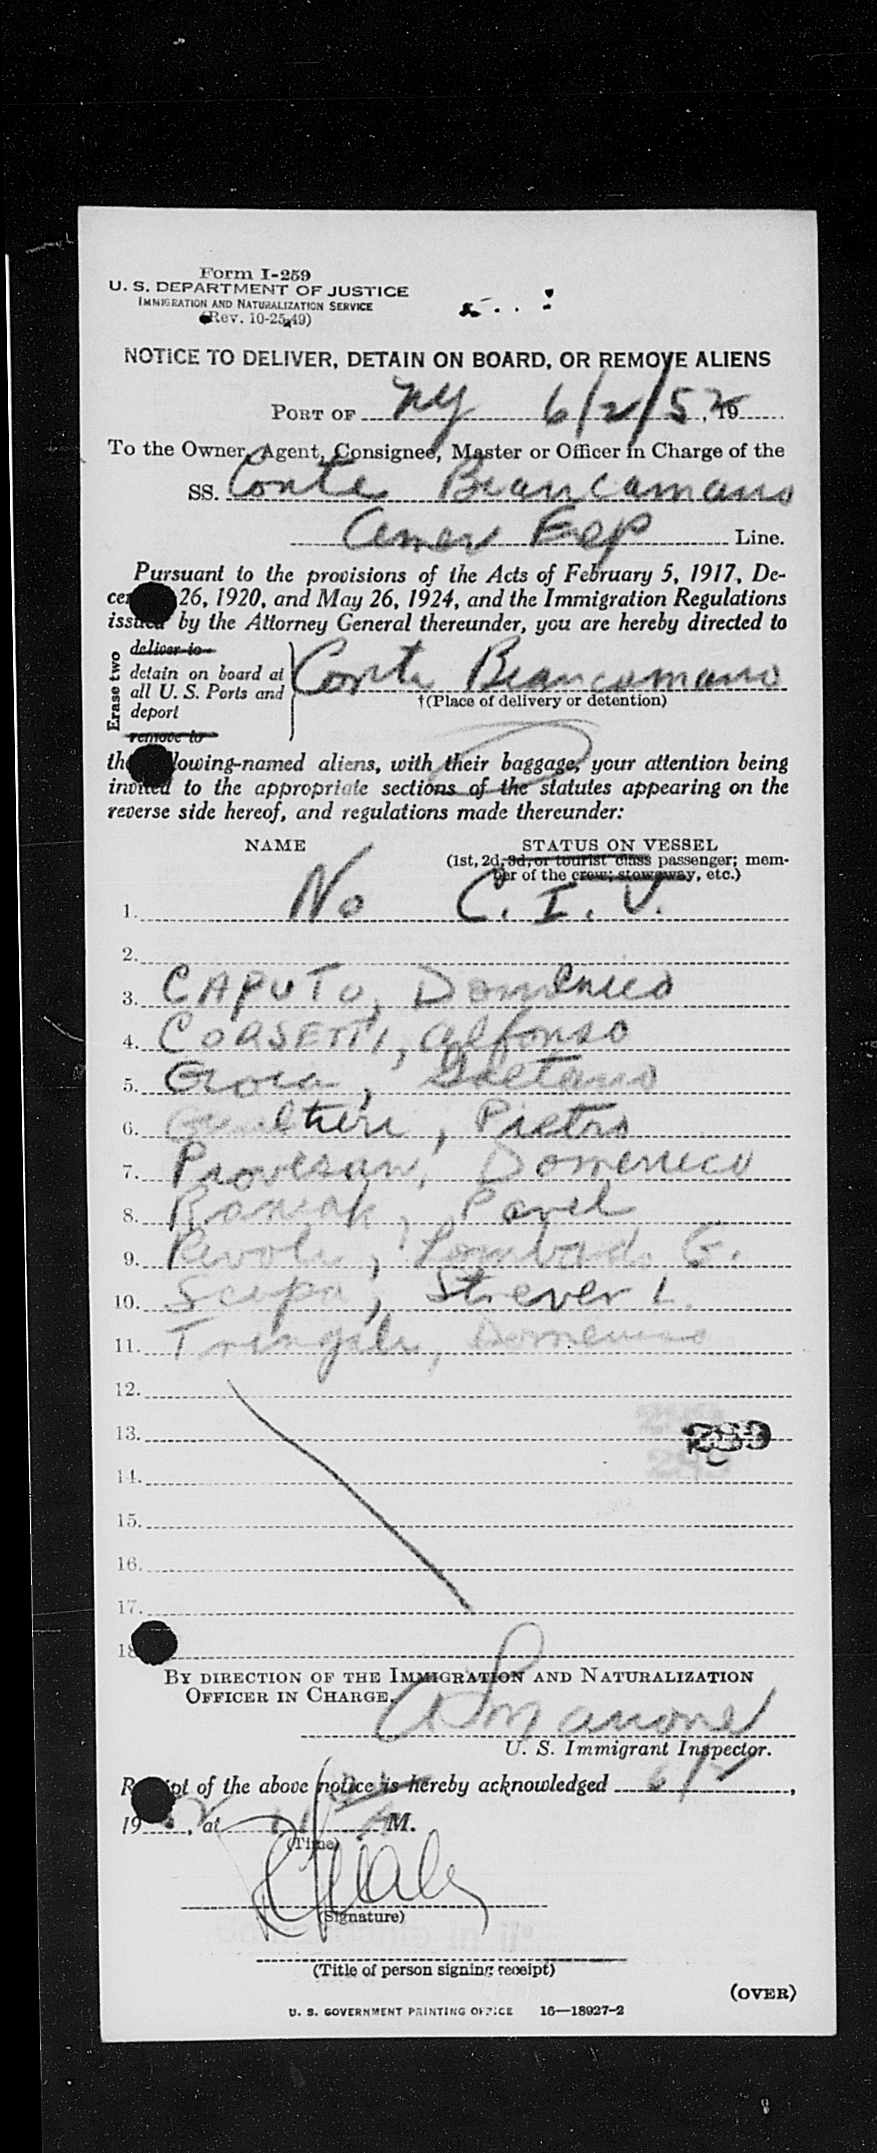 Form I-259
U. S. DEPARTMENT OF JUSTICE
IMMIGRATION AND NATURALIZATION SERVICE
(Rev. 10-25-49)
NOTICE TO DELIVER, DETAIN ON BOARD, OR REMOVE ALIENS
PORT OF NY 6/2/52, 19
To the Owner, Agent, Consignee, Master or Officer in Charge of the
SS. Conte Biancamano
Amer Exp Line.
Pursuant to the provisions of the Acts of February 5, 1917, De-
26, 1920, and May 26, 1924, and the Immigration Regulations
issued by the Attorney General thereunder, you are hereby directed to
Erase two
deliver to
detain on board at
all U. S. Ports and
deport
remove to
Conte Biancamano
†(Place of delivery or detention)
the following-named aliens, with their baggage, your attention being
invited to the appropriate sections of the statutes appearing on the
reverse side hereof, and regulations made thereunder:
NAME STATUS ON VESSEL
(1st, 2d, 3d, or tourist class passenger; mem-
ber of the crew; stowaway, etc.)
1. No C. I. V.
2.
3. CAPUTO, Domenico
4. CORSETTI, Alfonso
5. Gioia, Gaetano
6. Gualtieri, Pietro
7. Provesan, Domenico
8. Pavel
9. G.
10. L.
11. Tringali, Domenico
12.
13. 289
14.
15.
16.
17.
18
BY DIRECTION OF THE IMMIGRATION AND NATURALIZATION
OFFICER IN CHARGE.
U. S. Immigrant Inspector.
Receipt of the above notice is hereby acknowledged 6/2,
19, at M.
(Time)
(Signature)
(Title of person signing receipt)
(OVER)
U. S. GOVERNMENT PRINTING OFFICE 16—18927-2